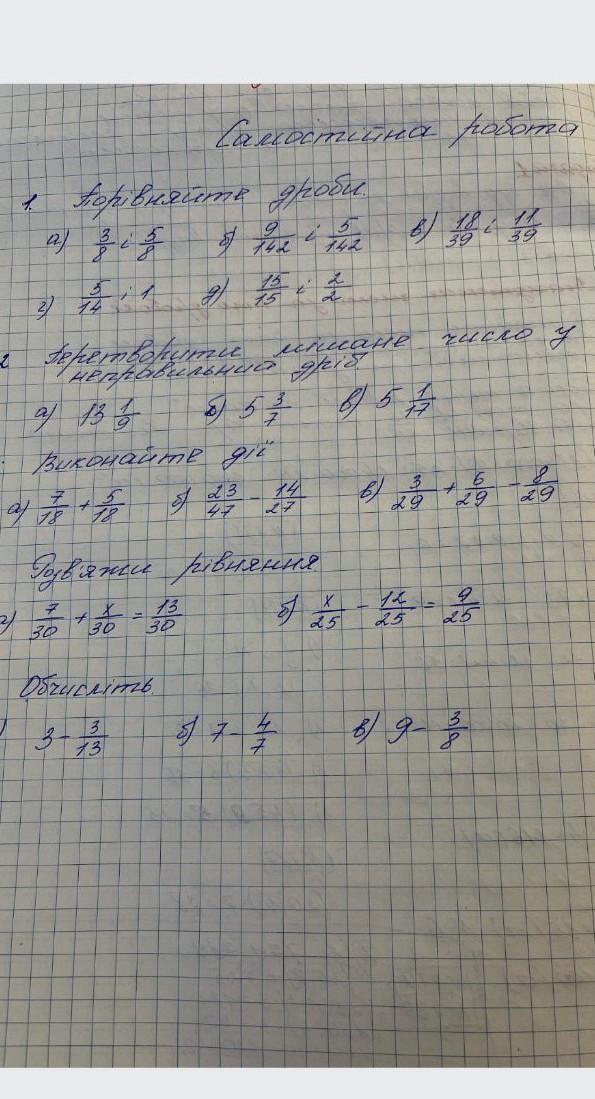 Самостійна робота
1. Порівняйте дроби.
а) 3/8 і 5/8 б) 9/142 і 5/142 в) 18/39 і 11/39
г) 5/14 і 1 д) 15/15 і 2/2
2 Перетворити мішане число у
неправильний дріб
а) 13 1/9 б) 5 3/7 в) 5 1/17
Виконайте дії
а) 7/18 + 5/18 б) 23/47 - 14/27 в) 3/29 + 6/29 - 8/29
Розв'яжи рівняння
а) 7/30 + х/30 = 13/30 б) х/25 - 12/25 = 9/25
Обчисліть.
) 3 - 3/13 б) 7 - 4/7 в) 9 - 3/8